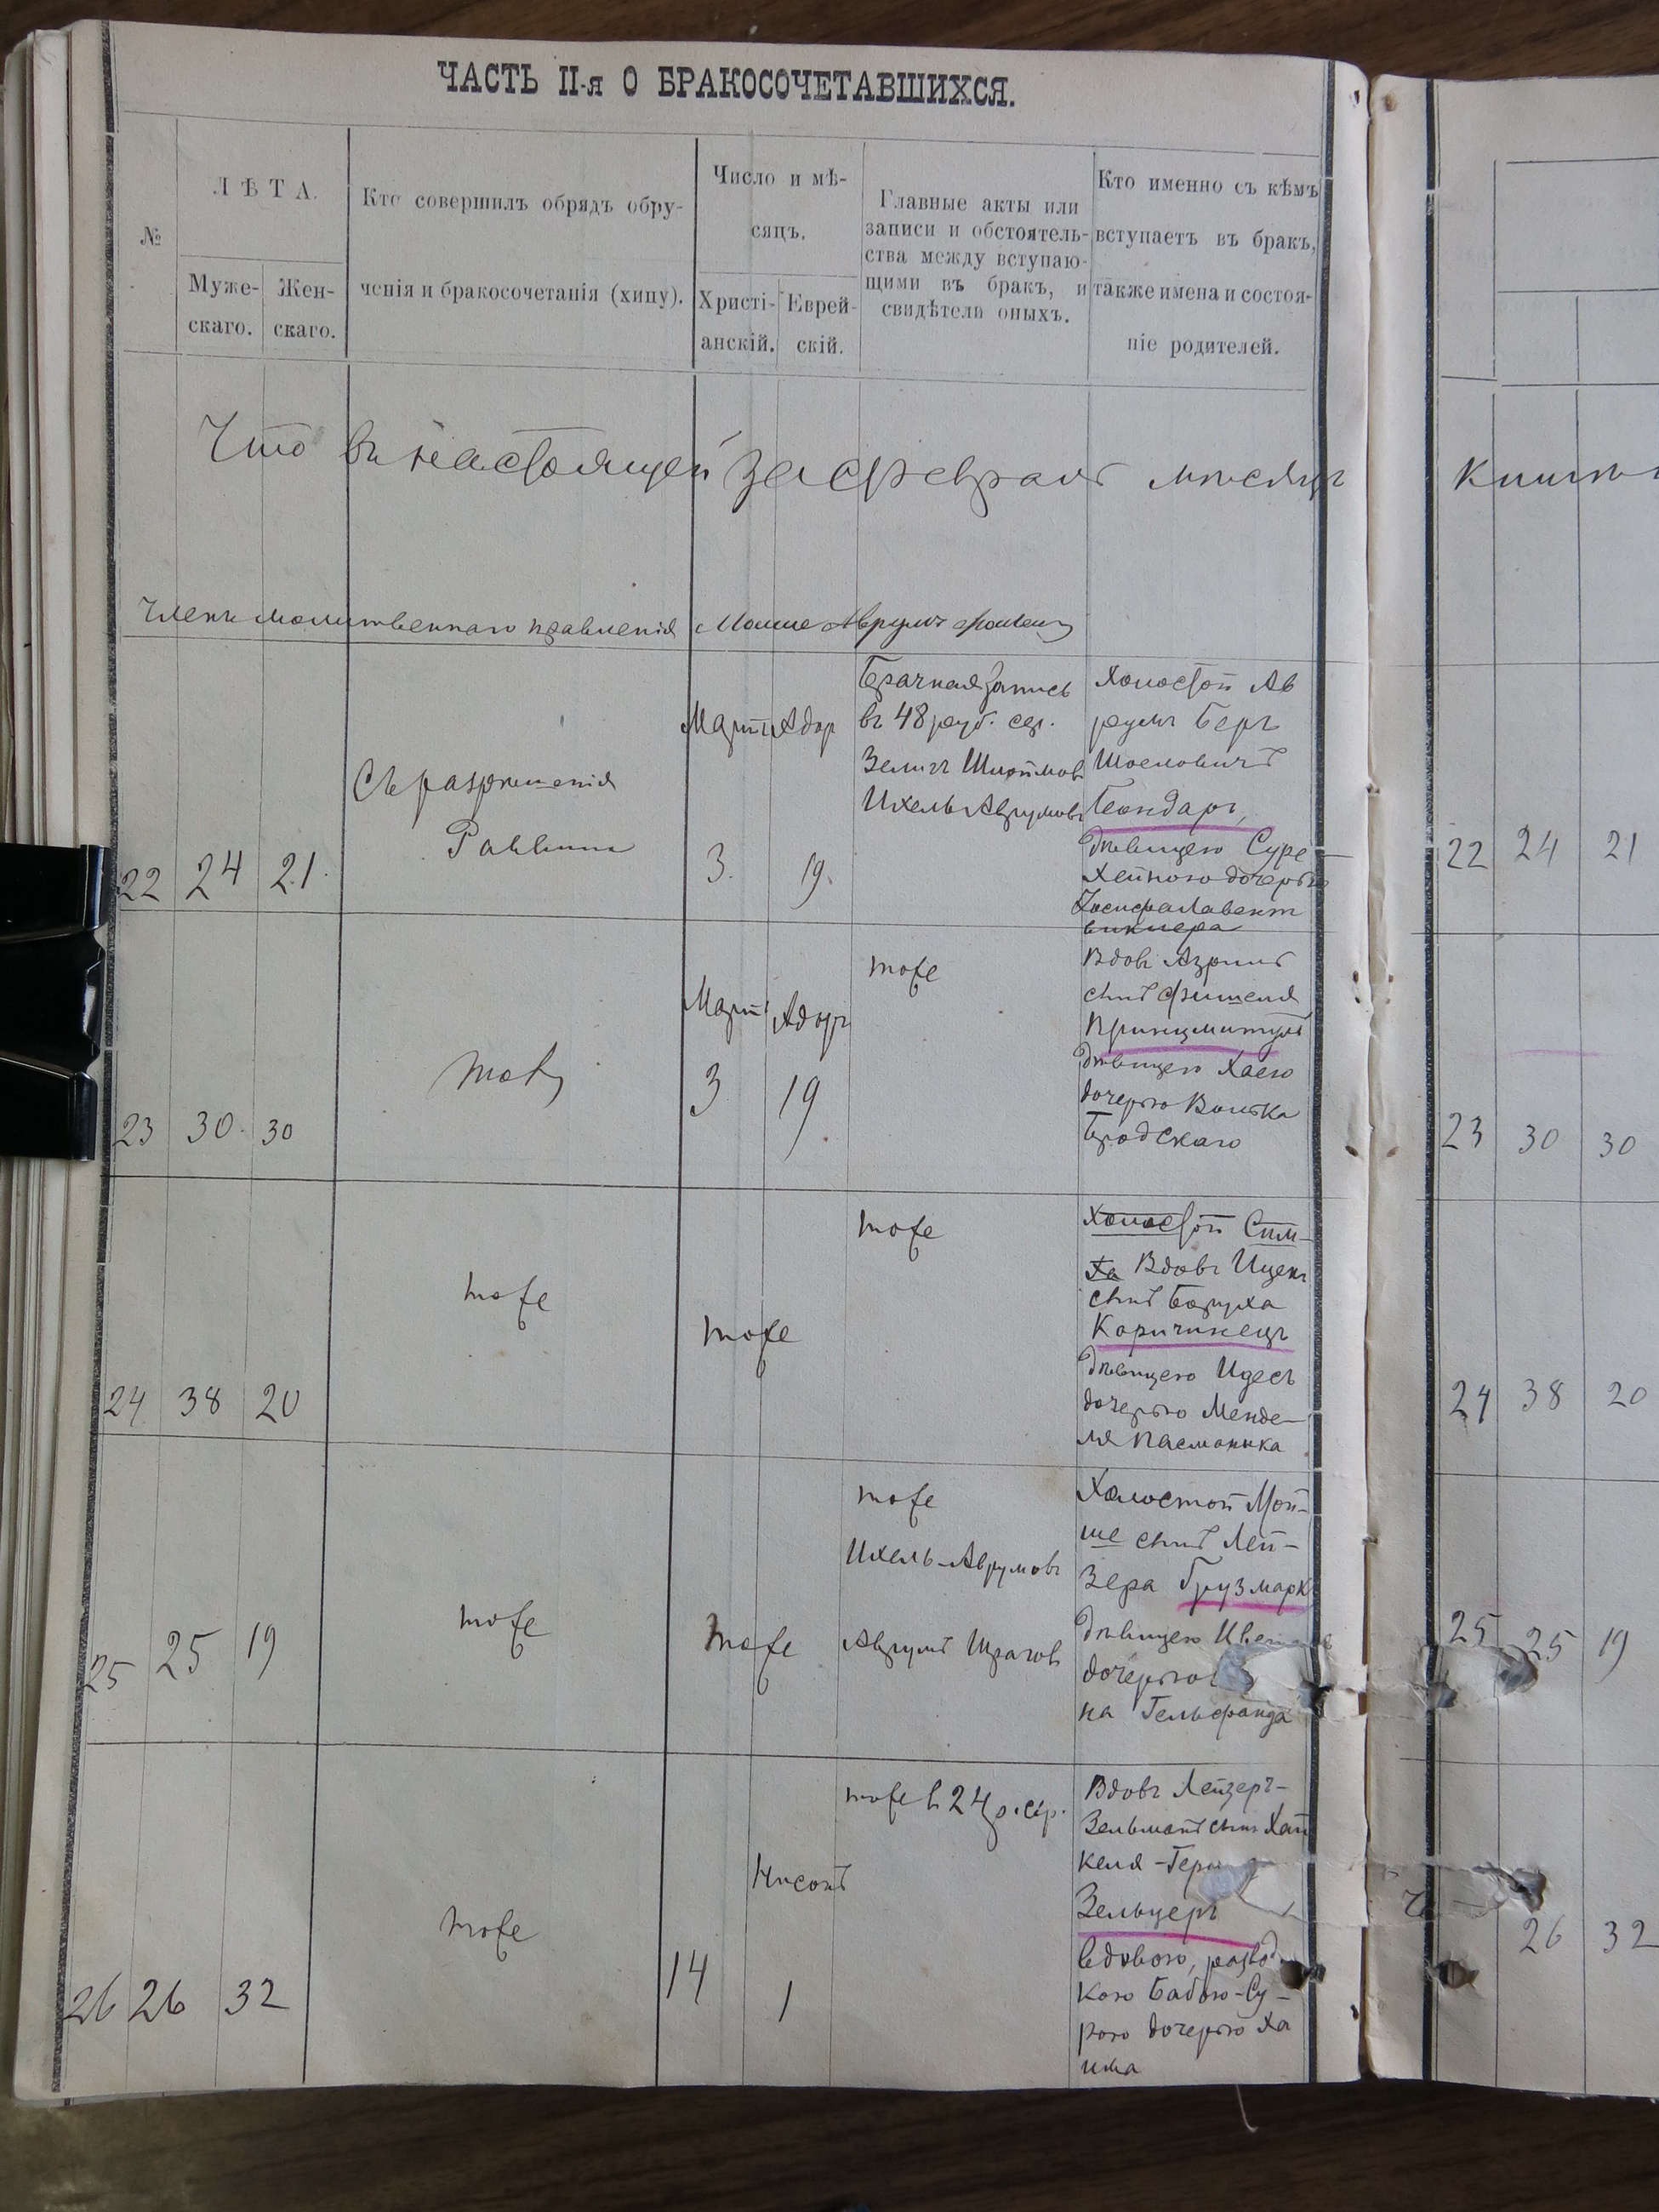 ЧАСТЬ II-я О БРАКОСОЧЕТАВШИХСЯ.
№
ЛѢТА.
Муже-
скаго.
Жен-
скаго.
Кто совершилъ обрядъ обру-
ченія и бракосочетанія (хипу).
Число и мѣ-
сяцъ.
Христі-
анскій.
Еврей-
скій.
Главные акты или
записи и обстоятель-
ства между вступаю-
щими въ бракъ, и
свидѣтели оныхъ.
Кто именно съ кѣмъ
вступаетъ въ бракъ,
также имена и состоя-
ніе родителей.
Что въ настоящей за февраль мѣсяцъ
Членъ молитвеннаго правленія Мошше Аврумъ
22 24 21.
Съ разрѣшенія
Раввина
Мартъ Адор
3. 19.
Брачная запись
въ 48 руб. сер.
Зелигъ
Ихель Аврумовъ
Холостой Ав
румъ Беръ
Бондаръ,
дѣвицею Суре
Хейною дочерью
23 30 30
тоже
Мартъ Адоръ
3 19
тоже
Вдовъ Азриль
сынъ Фишеля
дѣвицею Хаею
дочерью Волька
Бродскаго
24 38 20
тоже
тоже
тоже
Холостой Сим-
ха Вдовъ Ицекъ
сынъ Боруха
Коричинецъ
дѣвицею Идесъ
дочерью Менде-
ля Пасманика
25 25 19
тоже
тоже
тоже
Ихель-Аврумовъ
Аврумъ Шраговъ
Холостой Мой-
ше сынъ Лей-
зера Грузмарк
дѣвицею
дочерью
на Гельфанда
26 26 32
тоже
Нисонъ
14 1
тоже в 24 р. сер.
Вдовъ Лейзеръ-
Зельманъ сынъ Хай
келя-
Зельцеръ
вдовою, развод
кою Бабою-Су-
рою дочерью Ха
има
книгѣ
22 24 21
23 30 30
24 38 20
25 25 19
26 32